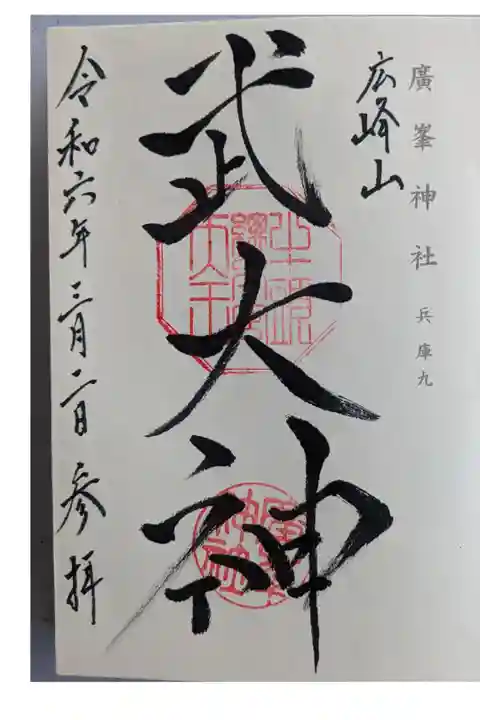 廣峯神社 兵庫九
広峰山
武大神
令和六年三月二日 参拝
廣峯神社